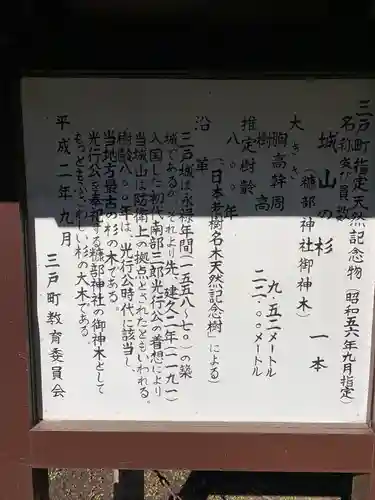 三戸町指定天然記念物（昭和五六年九月指定）
名称及び員数
城山の杉　一本
（糠部神社御神木）
大きさ
胸高幹周　九・五二メートル
樹高　二二・〇〇メートル
推定樹齢
八〇〇年
（日本老樹名木天然記念樹」による）
沿革
三戸城は永禄年間（一五五八～七〇）の築
城であるが、それより先、建久二年（一一九一）
入国した初代南部三郎光行公の着想により
当城山は防衛上の拠点とされたともいわれる。
樹齢八〇〇年は、光行公時代に該当し、
当地方最古の杉の木である。
光行公を奉祀する糠部神社の御神木として
もっともふさわしい杉の大木である。
平成二年九月
三戸町教育委員会